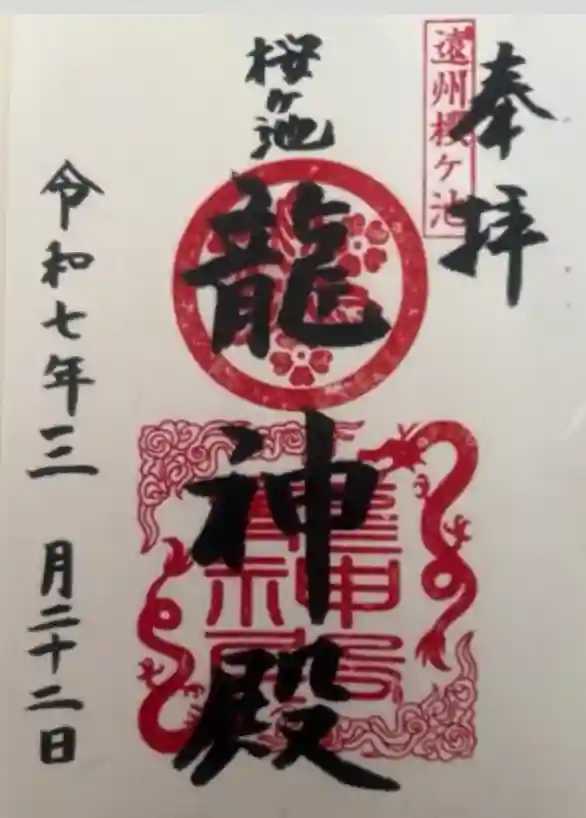 奉拝
遠州桜ヶ池
桜ヶ池
龍神殿
令和七年三月二十二日